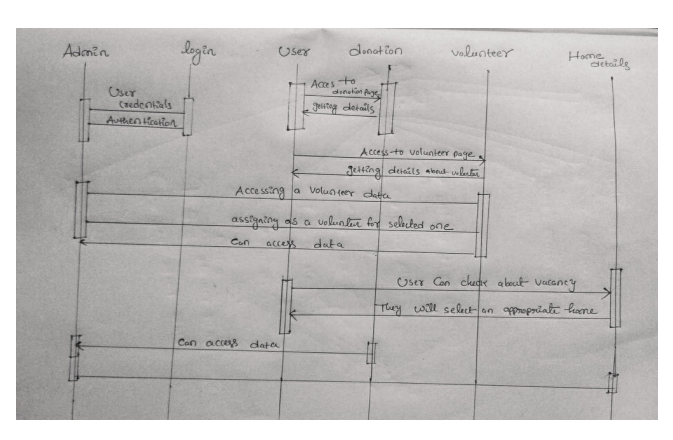 Admin
login
User
donation
volunteer
Home
details
User
Credentials
Authentication
Acces to
donation page
getting details
Access to volunteer page
getting details about
Accessing a Volunteer data
assigning as a volunter for selected one
Can access data
User Can check about vacancy
They will select an appropriate home
Can access data